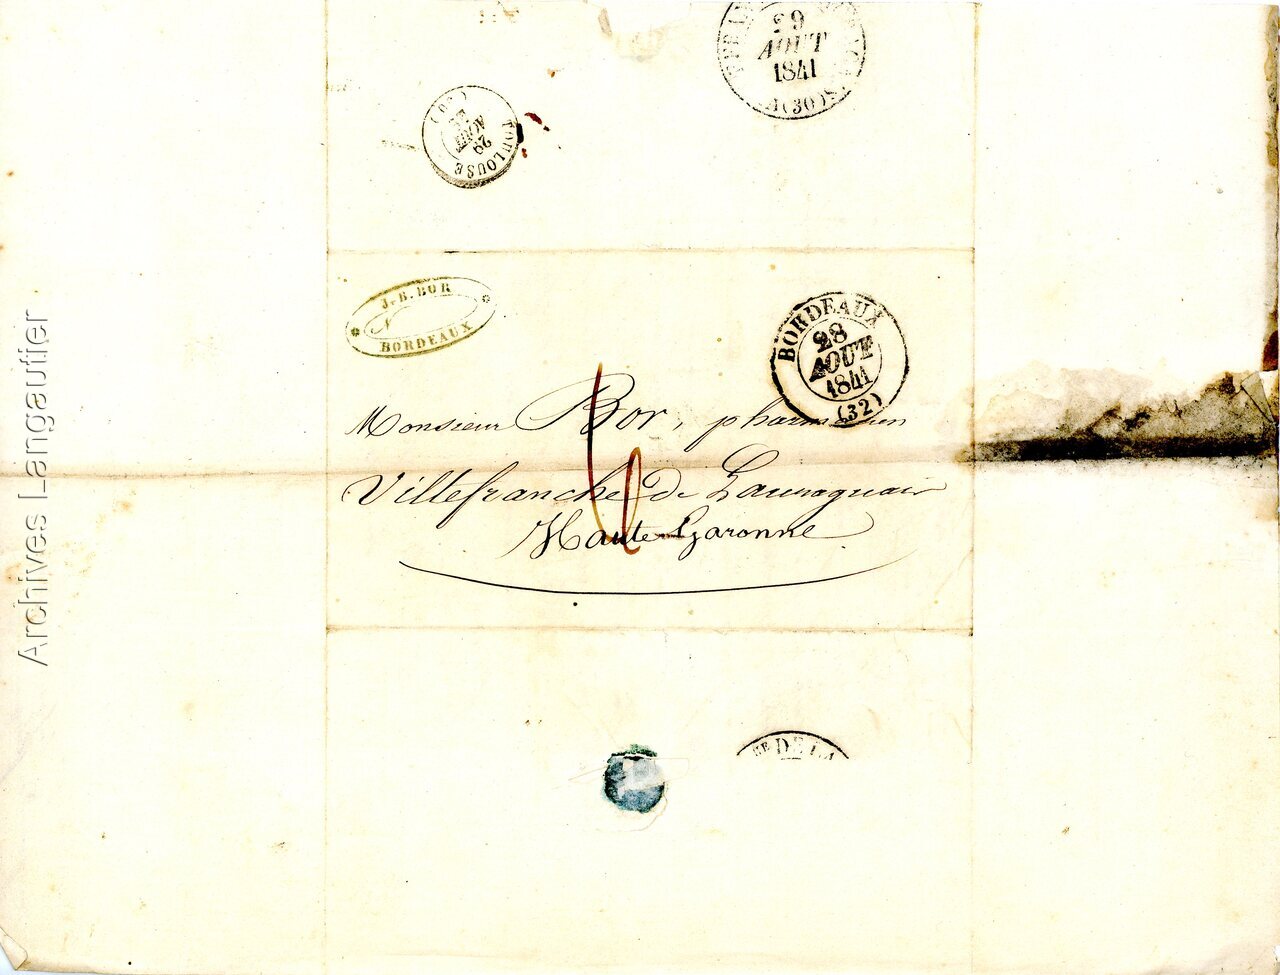 29
AOUT
1841
(30)
TOULOUSE
29
AOUT
J.-B. BOR
BORDEAUX
BORDEAUX
28
AOUT
1841
(32)
Monsieur Bor, pharmacien
Villefranche de Lauraguais
Haute-Garonne
6
DE LA
Archives Langautier